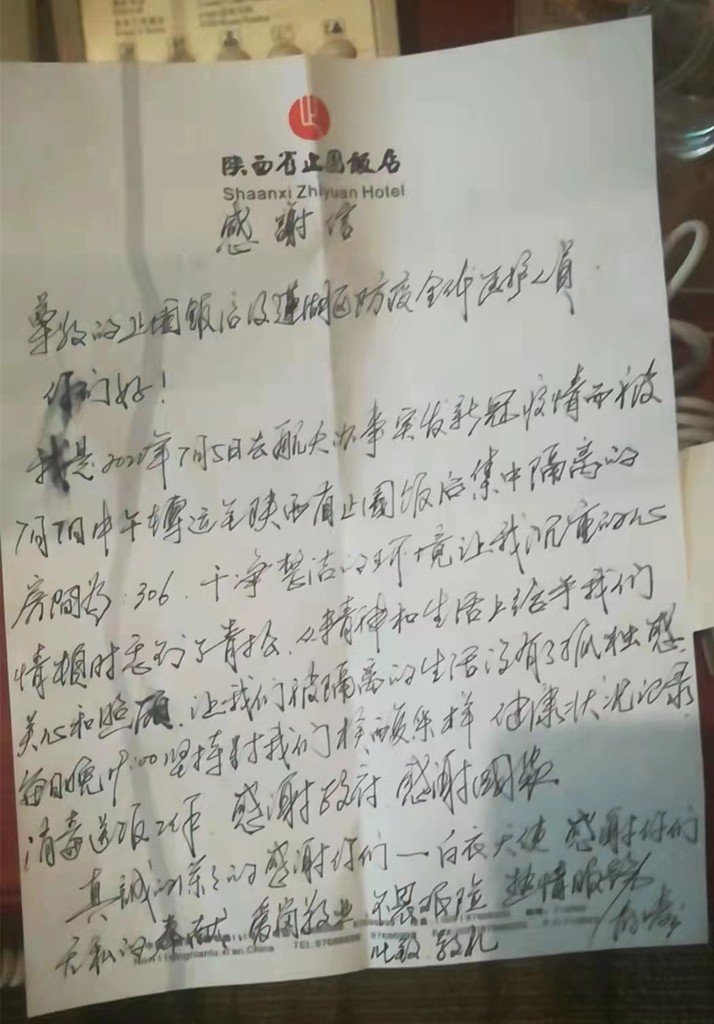 陕西省止園饭店
Shaanxi Zhiyuan Hotel
感謝信
尊敬的止園饭店及蓮湖区防疫全体医护人员
你们好！
我是2022年7月5日去航天办事突发新冠疫情而被
7月7日中午轉运至陕西省止園饭店集中隔离的
房间为:306.干净整洁的环境让我沉重的心
情顿时感到了轻松.从精神和生活上给予我们
关心和照顾.让我们被隔离的生活没有了孤独感.
每日晚9:00坚持对我们核酸采样 健康状况记录
消毒送饭工作 感谢政府 感谢國家
真誠的感谢你们—白衣天使 感谢你们
无私的奉献 爱岗敬业 不畏艰险 热情服务
此致 敬礼
Xi'an.China TEL: